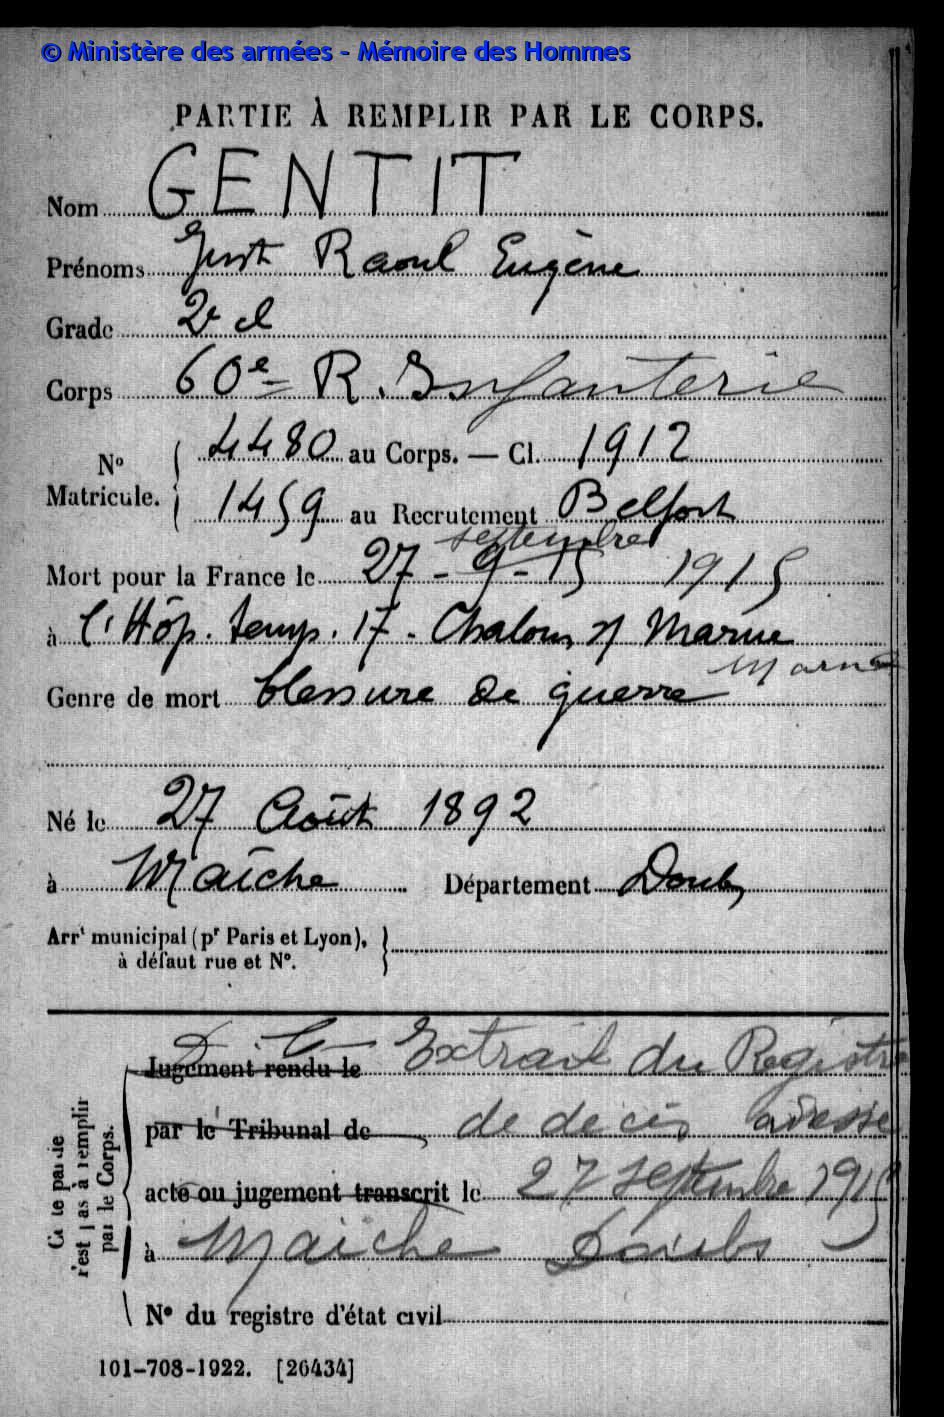 © Ministère des armées - Mémoire des Hommes
PARTIE À REMPLIR PAR LE CORPS.
Nom GENTIT
Prénoms Just Raoul Eugène
Grade 2e cl
Corps 60e R. Infanterie
No Matricule. 4480 au Corps. — Cl. 1912
1459 au Recrutement Belfort
septembre
Mort pour la France le 27 - 9 - 15 1915
à l'Hôp. temp. 17. Chalons s/ Marne
Marne
Genre de mort blessure de guerre
Né le 27 Août 1892
à Maîche Département Doubs
Arrt municipal (pr Paris et Lyon),
à défaut rue et No.
Jugement rendu le Extrait du Registre
par le Tribunal de de décès adressé
acte ou jugement transcrit le 27 septembre 1915
à Maîche Doubs
Cette partie
n'est pas à remplir
par le Corps.
No du registre d'état civil
101-708-1922. [26434]